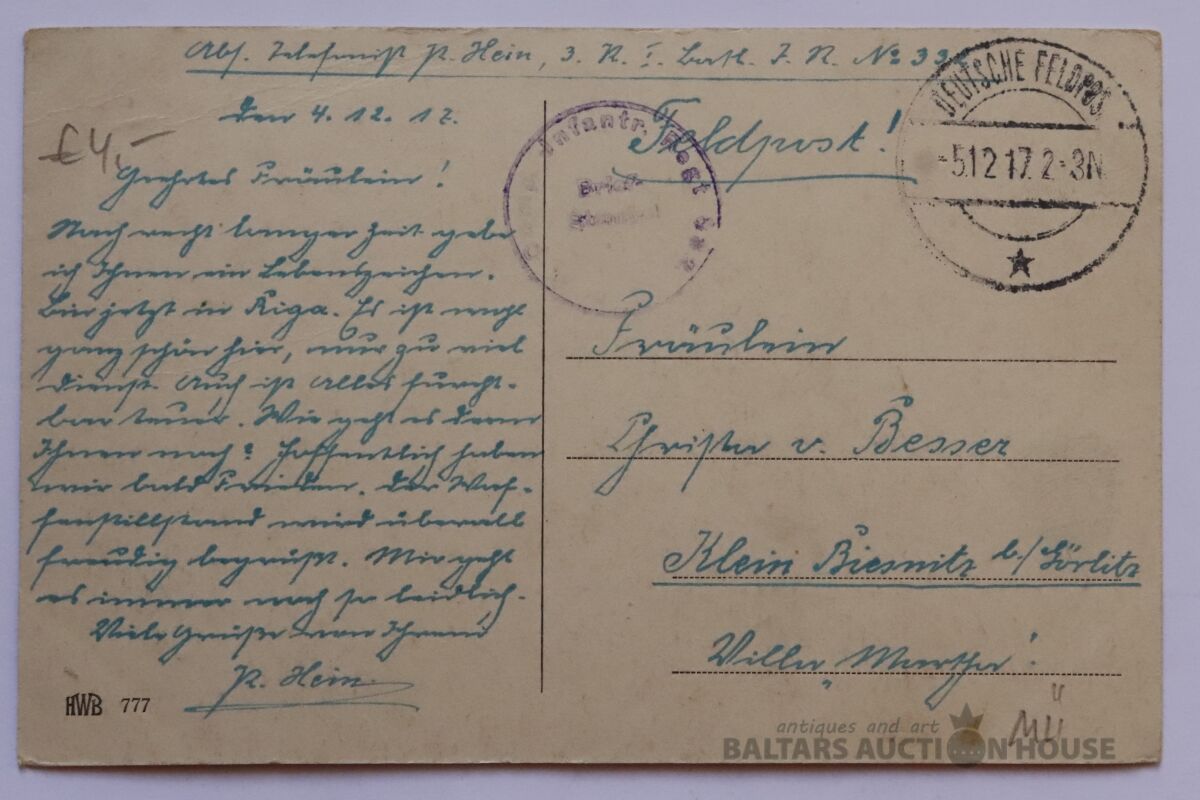 Abs. Telefonist P. Hein, 3. K. I. Batl. I. R. No 33
Den 4. 12. 17.
£4,-
Feldpost!
DEUTSCHE FELDPOS
-5.12 17. 2-3N
Infantr. Regt
Geehrtes Fräulein!
Nach recht langer Zeit gebe
ich Ihnen ein Lebenszeichen.
Bin jetzt in Riga. Es ist wohl
ganz schön hier, nur zu viel
Dienst. Auch ist Alles furcht-
bar teuer. Wie geht es denn
Ihnen noch? Hoffentlich haben
wir bald Frieden. Der Waf-
fenstillstand wird überall
freudig begrüßt. Mir geht
es immer noch so leidlich.
Viele Grüße von Ihrem
P. Hein.
HWB 777
Fräulein
Christa v. Besser
Klein Biesnitz b./Görlitz
Villa "Martha"!
MÜ
antiques and art
BALTARS AUCTION HOUSE